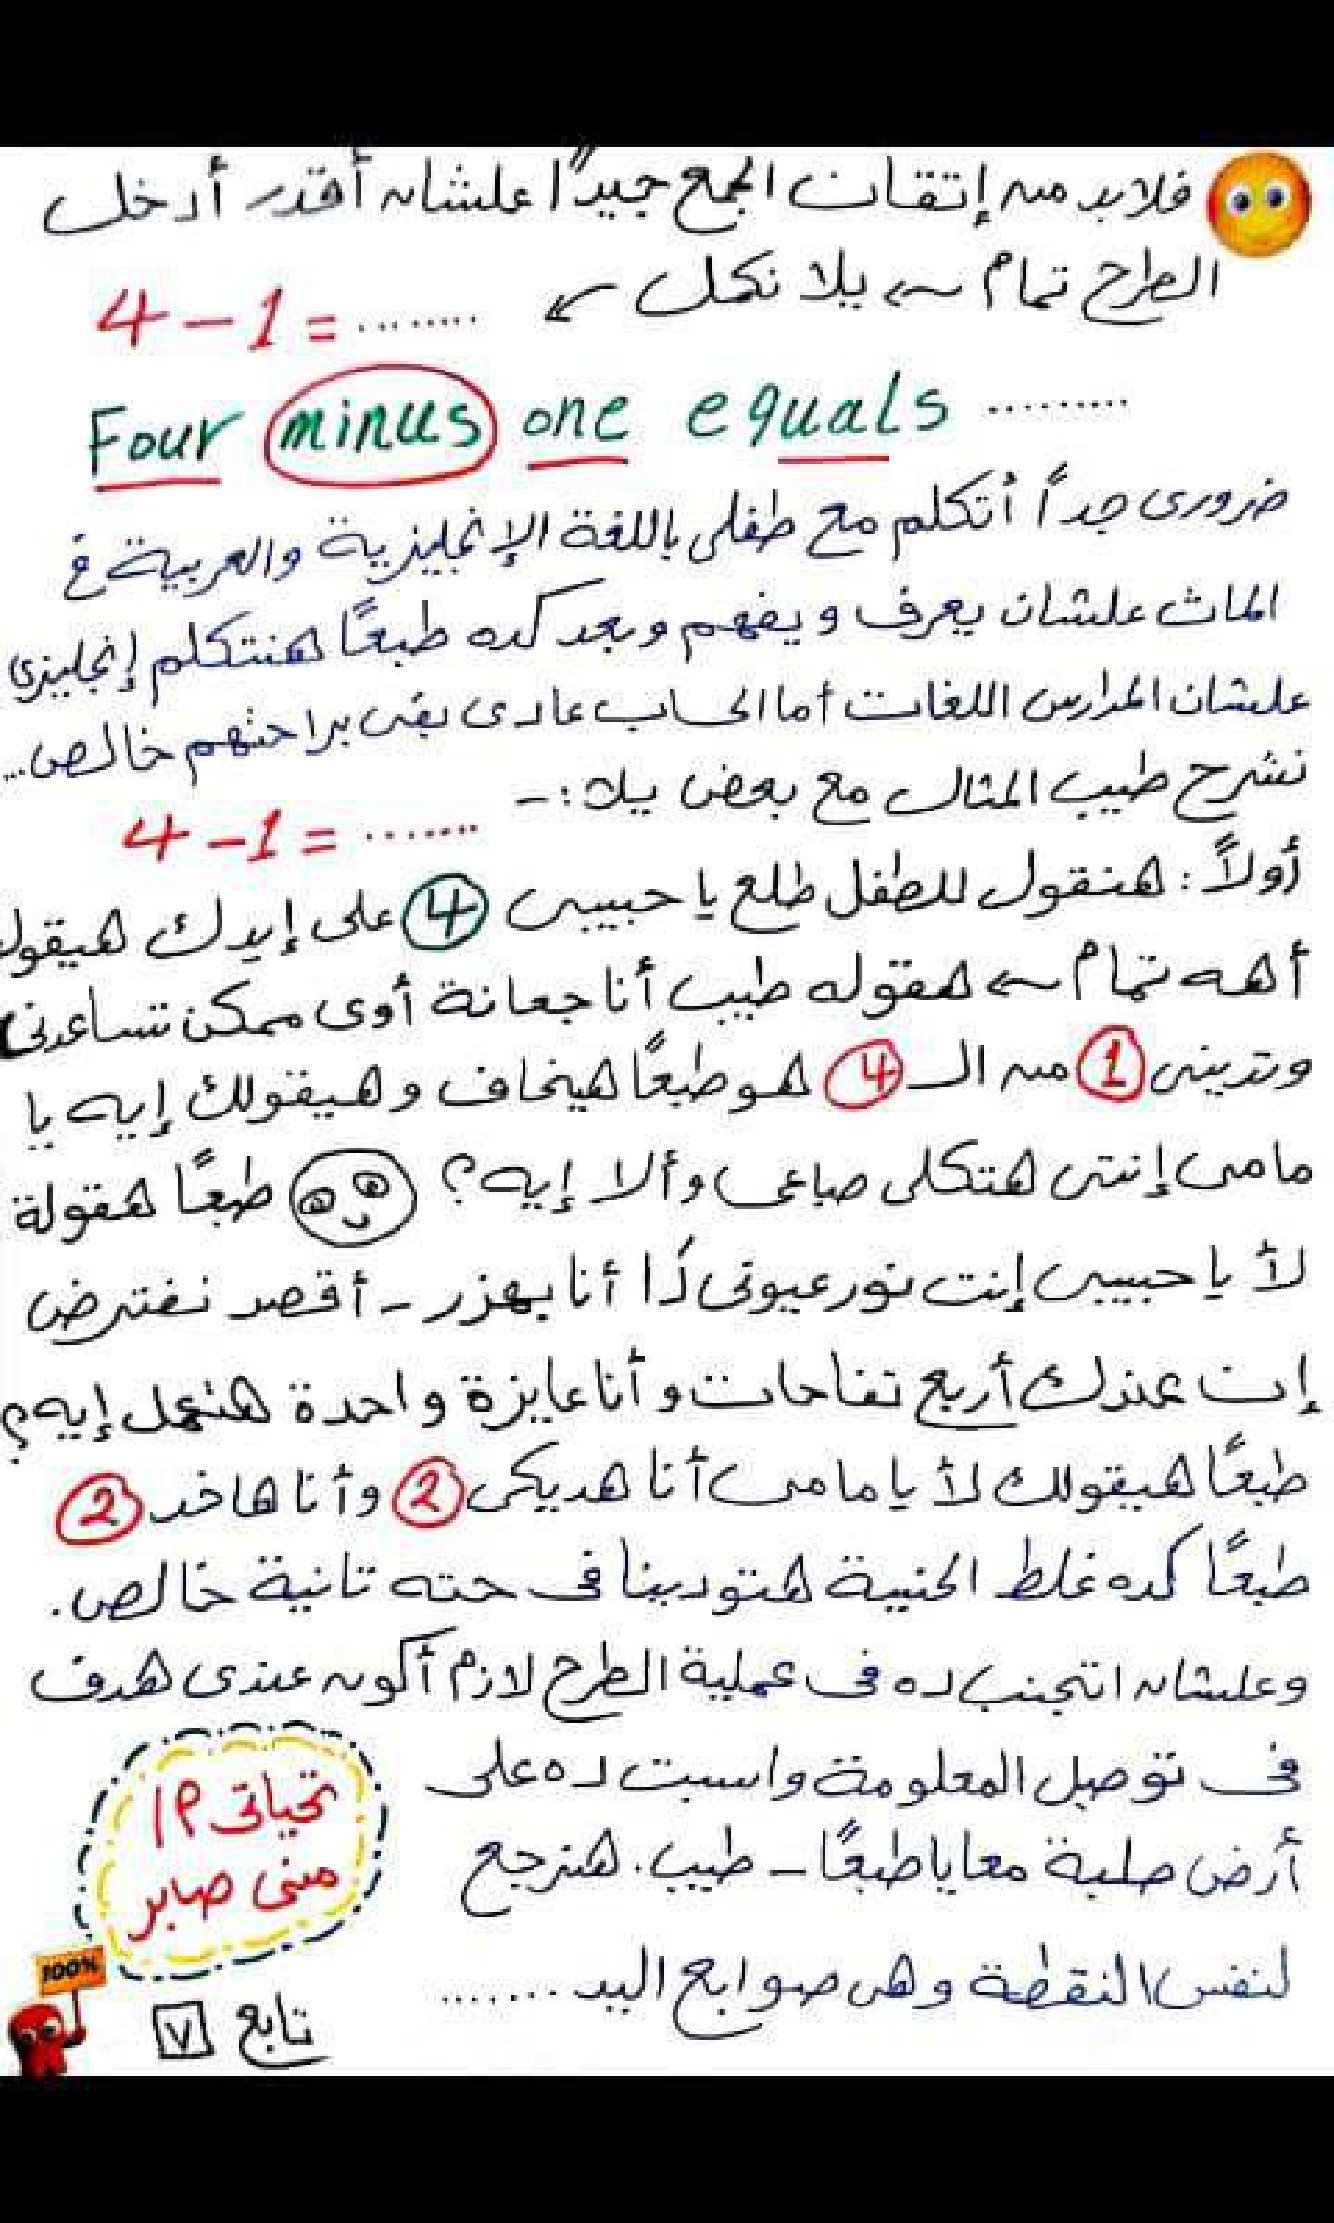 فلابد من إتقان الجمع جيدًا علشان أقدر أدخل
الطرح تمام ← يلا نكمل ↙
4 - 1 = ........
Four minus one equals .........
ضرورى جدًا أتكلم مع طفلى باللغة الإنجليزية والعربية في
الماث علشان يعرف ويفهم وبعد كده طبعًا هنتكلم إنجليزى
علشان المدارس اللغات أما الحساب عادى بقى براحتهم خالص...
نشرح طيب المثال مع بعض يلا :-
4 - 1 = .......
أولاً : هنقول للطفل طلع يا حبيبى 4 على إيدك هيقول
أهه تمام ← هقوله طيب أنا جعانة أوى ممكن تساعدنى
وتدينى 1 من الـ 4 هو طبعًا هيخاف وهيقولك إيه يا
مامى إنتى هتكلى صباعى وألا إيه ؟ طبعًا هقولة
لأ يا حبيبى إنت نور عيونى دا أنا بهزر - أقصد نفترض
إن عندك أربع تفاحات وأنا عايزة واحدة هنعمل إيه ؟
طبعًا هيقولك لأ يا مامى أنا هديكى 2 وأنا هاخد 2
طبعًا كده غلط الحنية هتودينا فى حته تانية خالص.
وعلشان اتجنب ده فى عملية الطرح لازم أكون عندى هدف
فى توصيل المعلومة واسبت ده على
أرض صلبة معايا طبعًا - طيب. هنرجع
لنفس النقطة وهى صوابع اليد .......
تحياتى م/
منى صابر
100%
تابع ٧